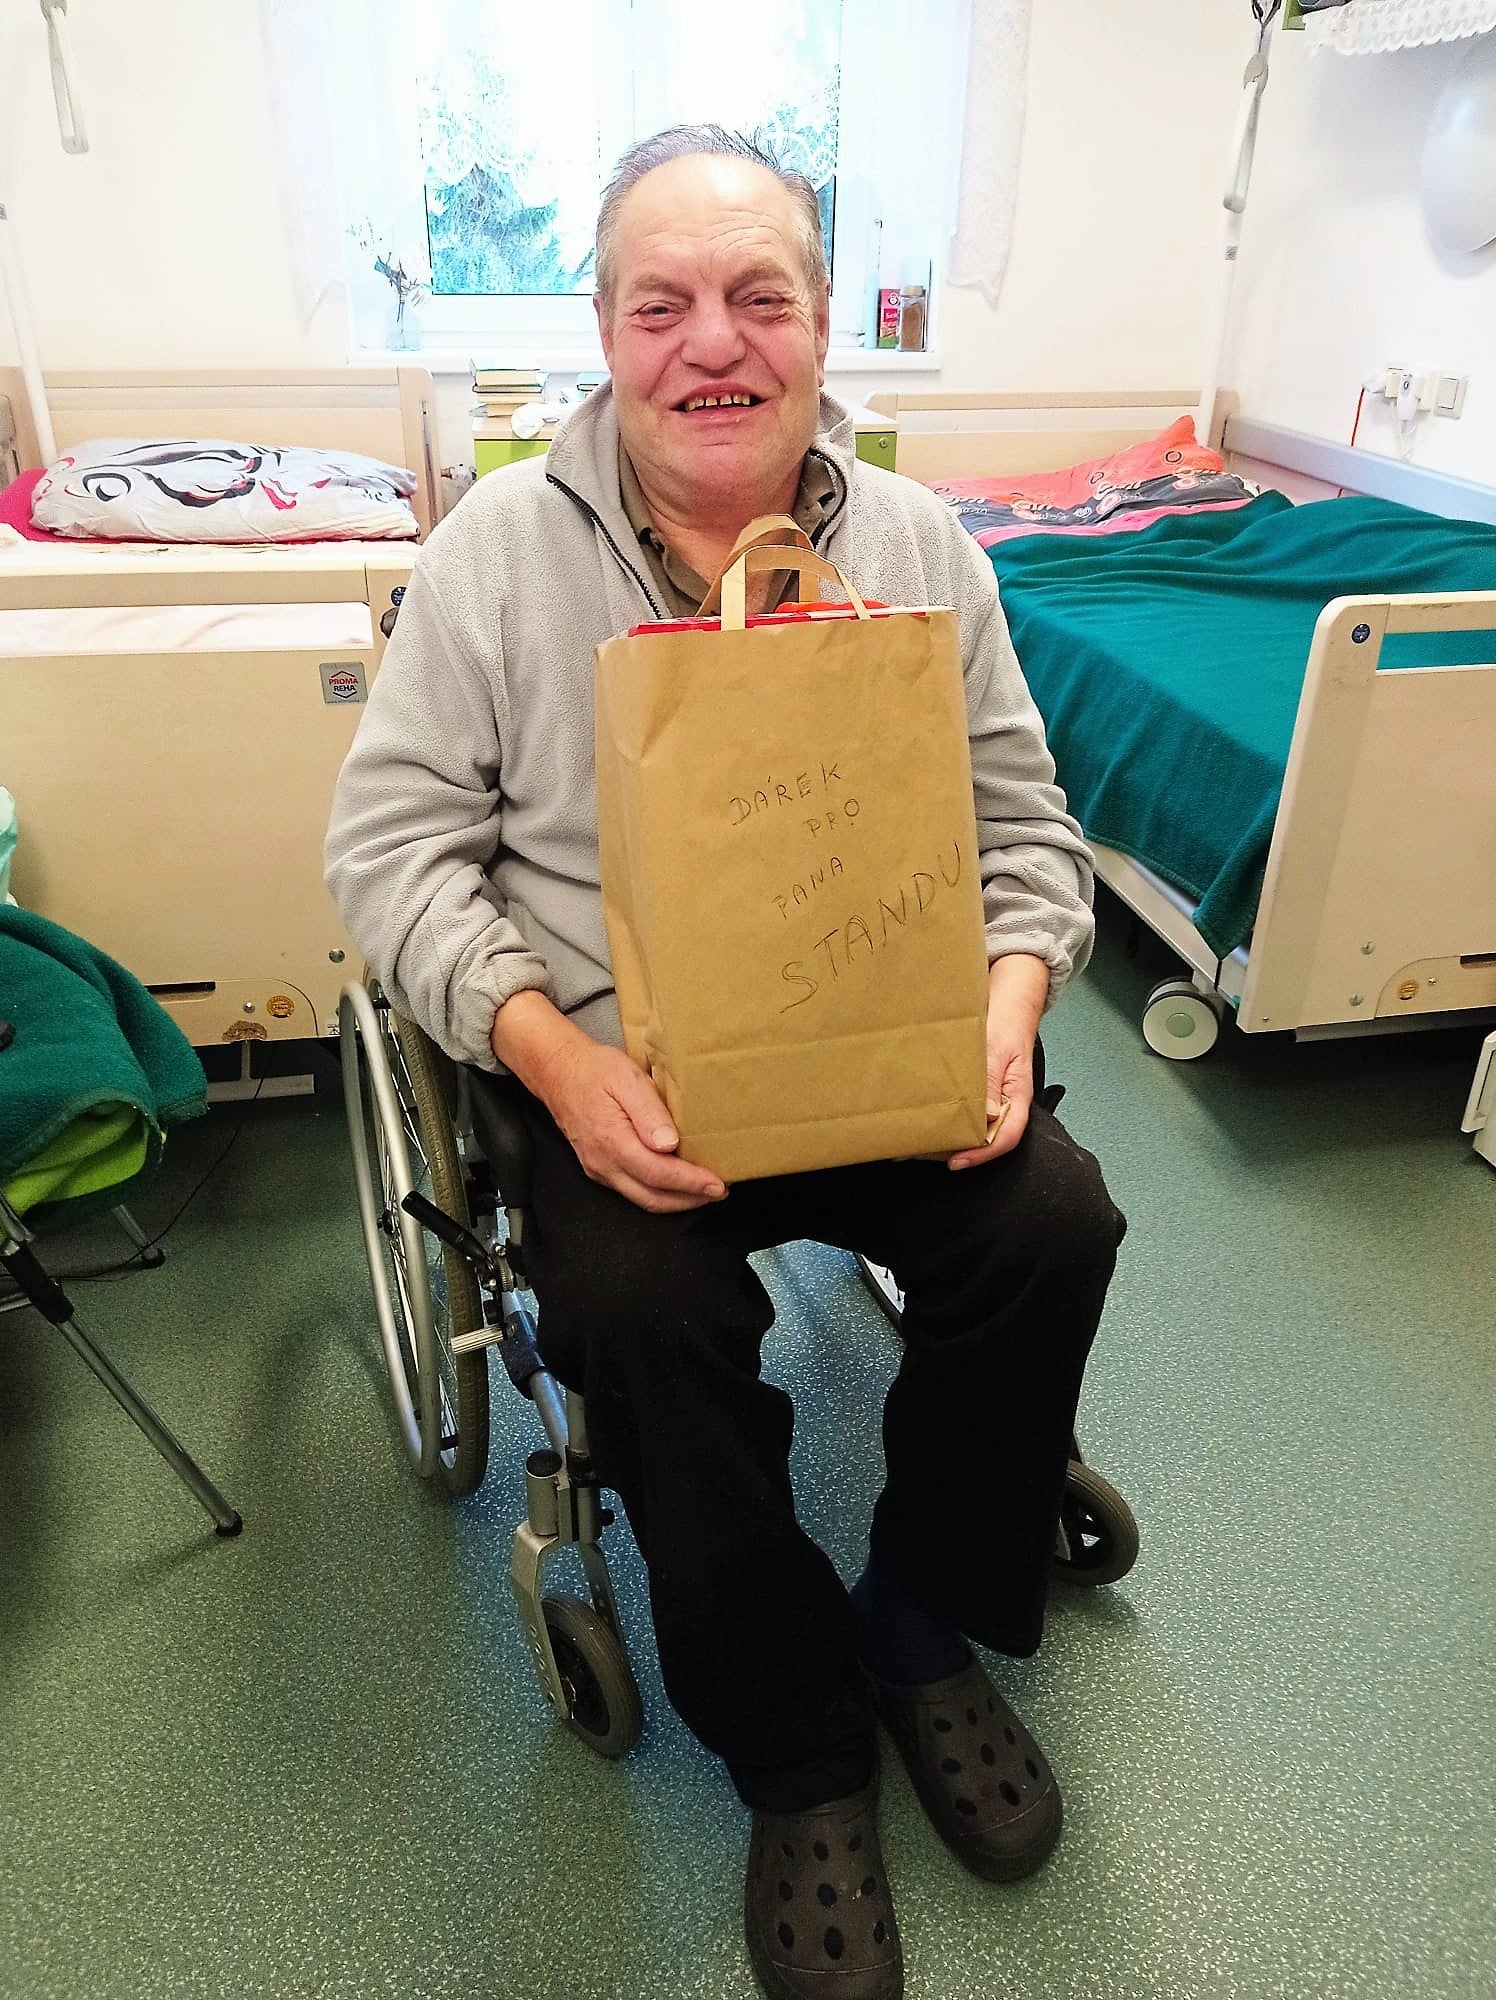 DÁREK
PRO
PANA
STANDU
PROMA
REHA